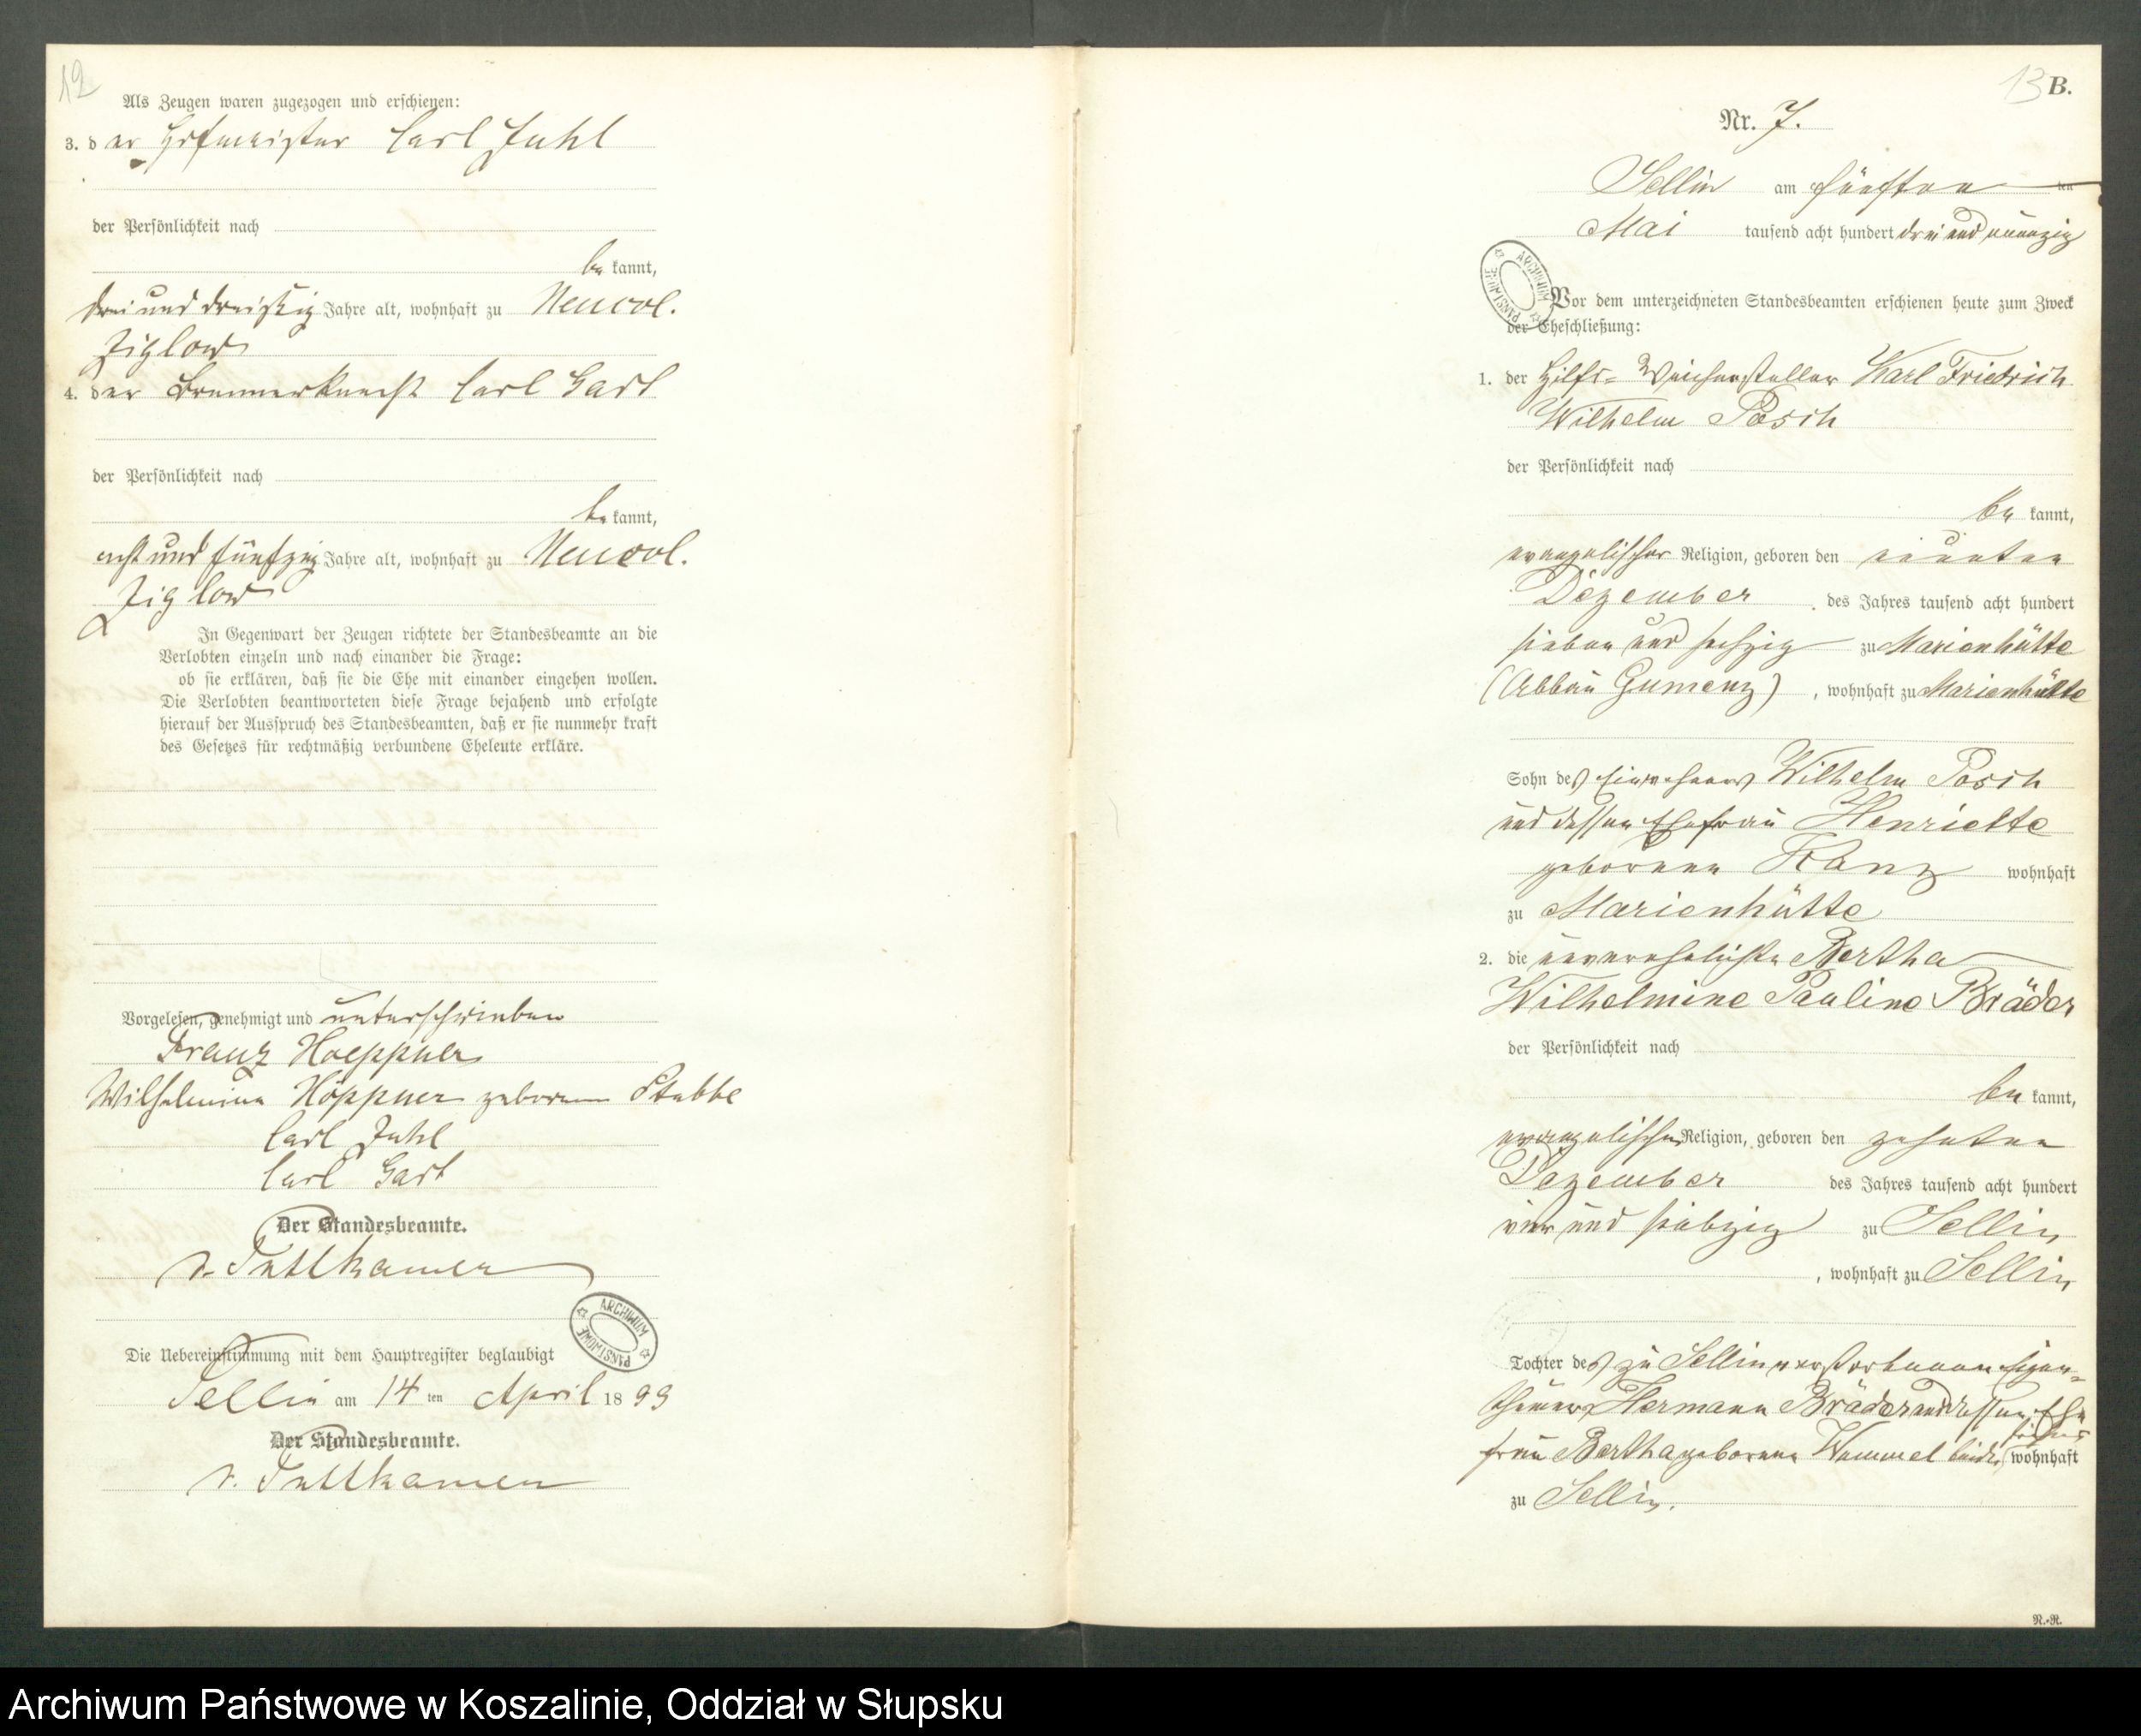 12
Als Zeugen waren zugezogen und erschienen:
3. der Hofmeister Carl Juhl
der Persönlichkeit nach
be kannt,
drei und dreißig Jahre alt, wohnhaft zu Neucol.
Ziglow
4. der Brennerknecht Carl Gast
der Persönlichkeit nach
be kannt,
acht und fünfzig Jahre alt, wohnhaft zu Neucol.
Ziglow
In Gegenwart der Zeugen richtete der Standesbeamte an die
Verlobten einzeln und nach einander die Frage:
ob sie erklären, daß sie die Ehe mit einander eingehen wollen.
Die Verlobten beantworteten diese Frage bejahend und erfolgte
hierauf der Ausspruch des Standesbeamten, daß er sie nunmehr kraft
des Gesetzes für rechtmäßig verbundene Eheleute erkläre.
Vorgelesen, genehmigt und unterschrieben
Franz Hoeppner
Wilhelmine Höppner geborene Stubbe
Carl Juhl
Carl Gast
Der Standesbeamte.
v. Puttkamer
ARCHIWUM PAŃSTWOWE
Die Uebereinstimmung mit dem Hauptregister beglaubigt
Sellin am 14 ten April 1893
Der Standesbeamte.
v. Puttkamer
13 B.
Nr. 7.
Sellin am fünften ten
Mai tausend acht hundert drei und neunzig
ARCHIWUM PAŃSTWOWE
Vor dem unterzeichneten Standesbeamten erschienen heute zum Zweck
der Eheschließung:
1. der Hilfs-Weichensteller Karl Friedrich
Wilhelm Posch
der Persönlichkeit nach
be kannt,
evangelischer Religion, geboren den neunten
Dezember des Jahres tausend acht hundert
sieben und sechzig zu Marienhütte
(Abbau Gumenz), wohnhaft zu Marienhütte
Sohn des Einwohners Wilhelm Posch
und dessen Ehefrau Henriette
geborenen Kanz wohnhaft
zu Marienhütte
2. die unverehelichte Bertha
Wilhelmine Pauline Bräder
der Persönlichkeit nach
be kannt,
evangelischer Religion, geboren den zehnten
Dezember des Jahres tausend acht hundert
vier und siebzig zu Sellin
, wohnhaft zu Sellin
Tochter des zu Sellin verstorbenen Eigen-
thümers Hermann Bräder und dessen Ehe
frau Bertha geborene Wommel beide früher wohnhaft
zu Sellin.
N.-R.
Archiwum Państwowe w Koszalinie, Oddział w Słupsku